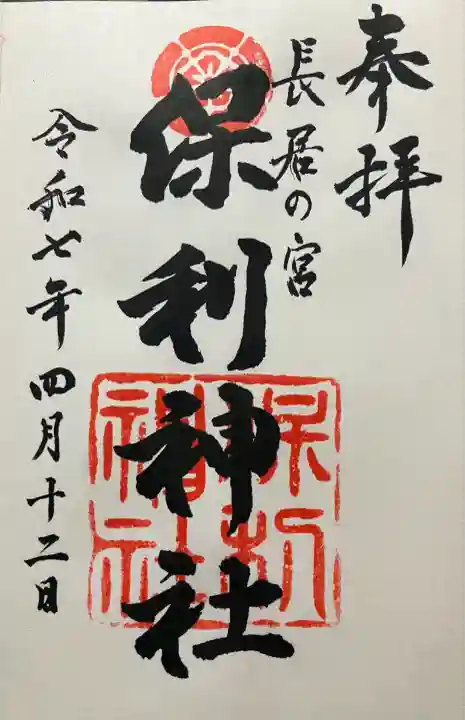 奉拝
長居の宮
保利神社
令和七年四月十二日
保利
神社